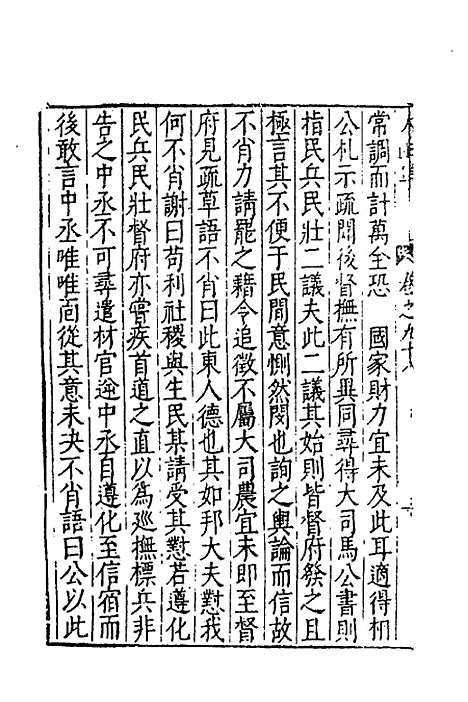 常調而計萬全恐　國家財力宜未及此耳適得相
公札示疏閱後督撫有所異同尋得大司馬公書則
指民兵民壯二議夫此二議其始則皆督府發之且
極言其不便于民間意惻然閔也詢之輿論而信故
不肖力請罷之藉令追徵不屬大司農宜未即至督
府見疏草語不肖曰此東人德也其如邦大夫懟我
何不肖謝曰苟利社稷與生民某請受其懟若遵化
民兵民壯督府亦嘗疾首道之直以爲巡撫標兵非
告之中丞不可尋遣材官逆中丞自遵化至信宿而
後敢言中丞唯唯卮從其意未决不肖語曰公以此
卷之九十